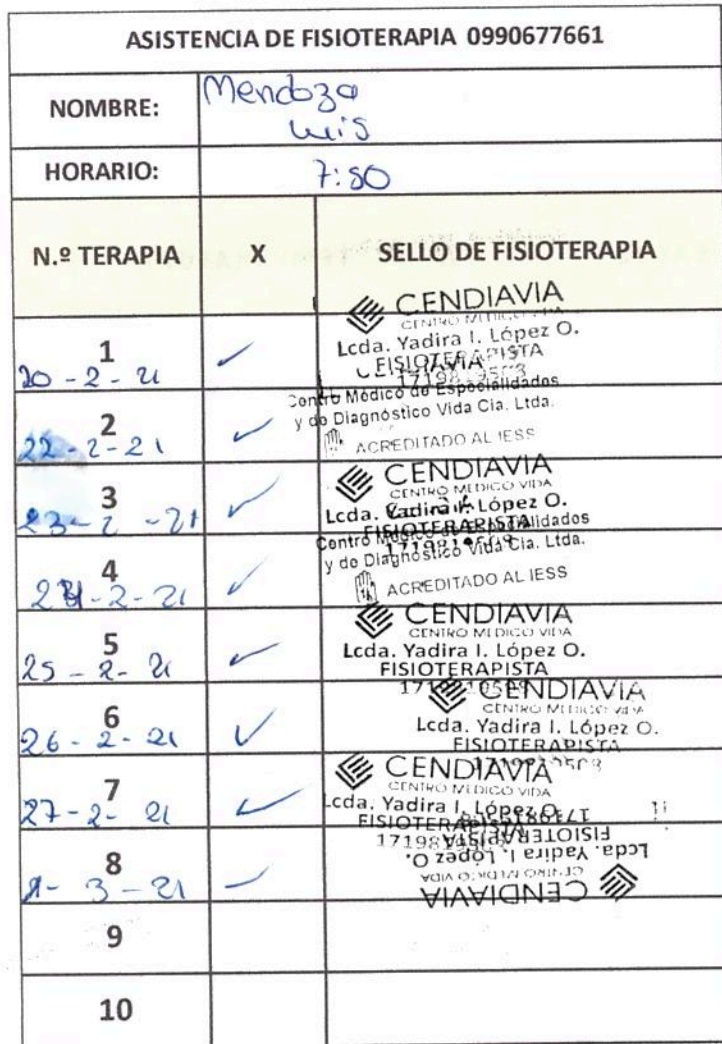 ASISTENCIA DE FISIOTERAPIA 0990677661
NOMBRE: Mendoza
Luis
HORARIO: 7:50
N.º TERAPIA X SELLO DE FISIOTERAPIA
CENDIAVIA
CENTRO MEDICO VIDA
Lcda. Yadira I. López O.
FISIOTERAPISTA
1
20-2-21
Centro Médico de Especialidades
y de Diagnóstico Vida Cia. Ltda.
2
22-2-21
ACREDITADO AL IESS
CENDIAVIA
CENTRO MEDICO VIDA
3
Lcda. Yadira I. López O.
23-2-21
FISIOTERAPISTA
Centro Médico de Especialidades
y de Diagnóstico Vida Cia. Ltda.
4
24-2-21
ACREDITADO AL IESS
CENDIAVIA
CENTRO MEDICO VIDA
5
Lcda. Yadira I. López O.
25-2-21
FISIOTERAPISTA
CENDIAVIA
CENTRO MEDICO VIDA
6
Lcda. Yadira I. López O.
26-2-21
FISIOTERAPISTA
CENDIAVIA
CENTRO MEDICO VIDA
7
Lcda. Yadira I. López O.
27-2-21
FISIOTERAPISTA
8
1-3-21
FISIOTERAPISTA
Lcda. Yadira I. López O.
CENTRO MEDICO VIDA
CENDIAVIA
9
10